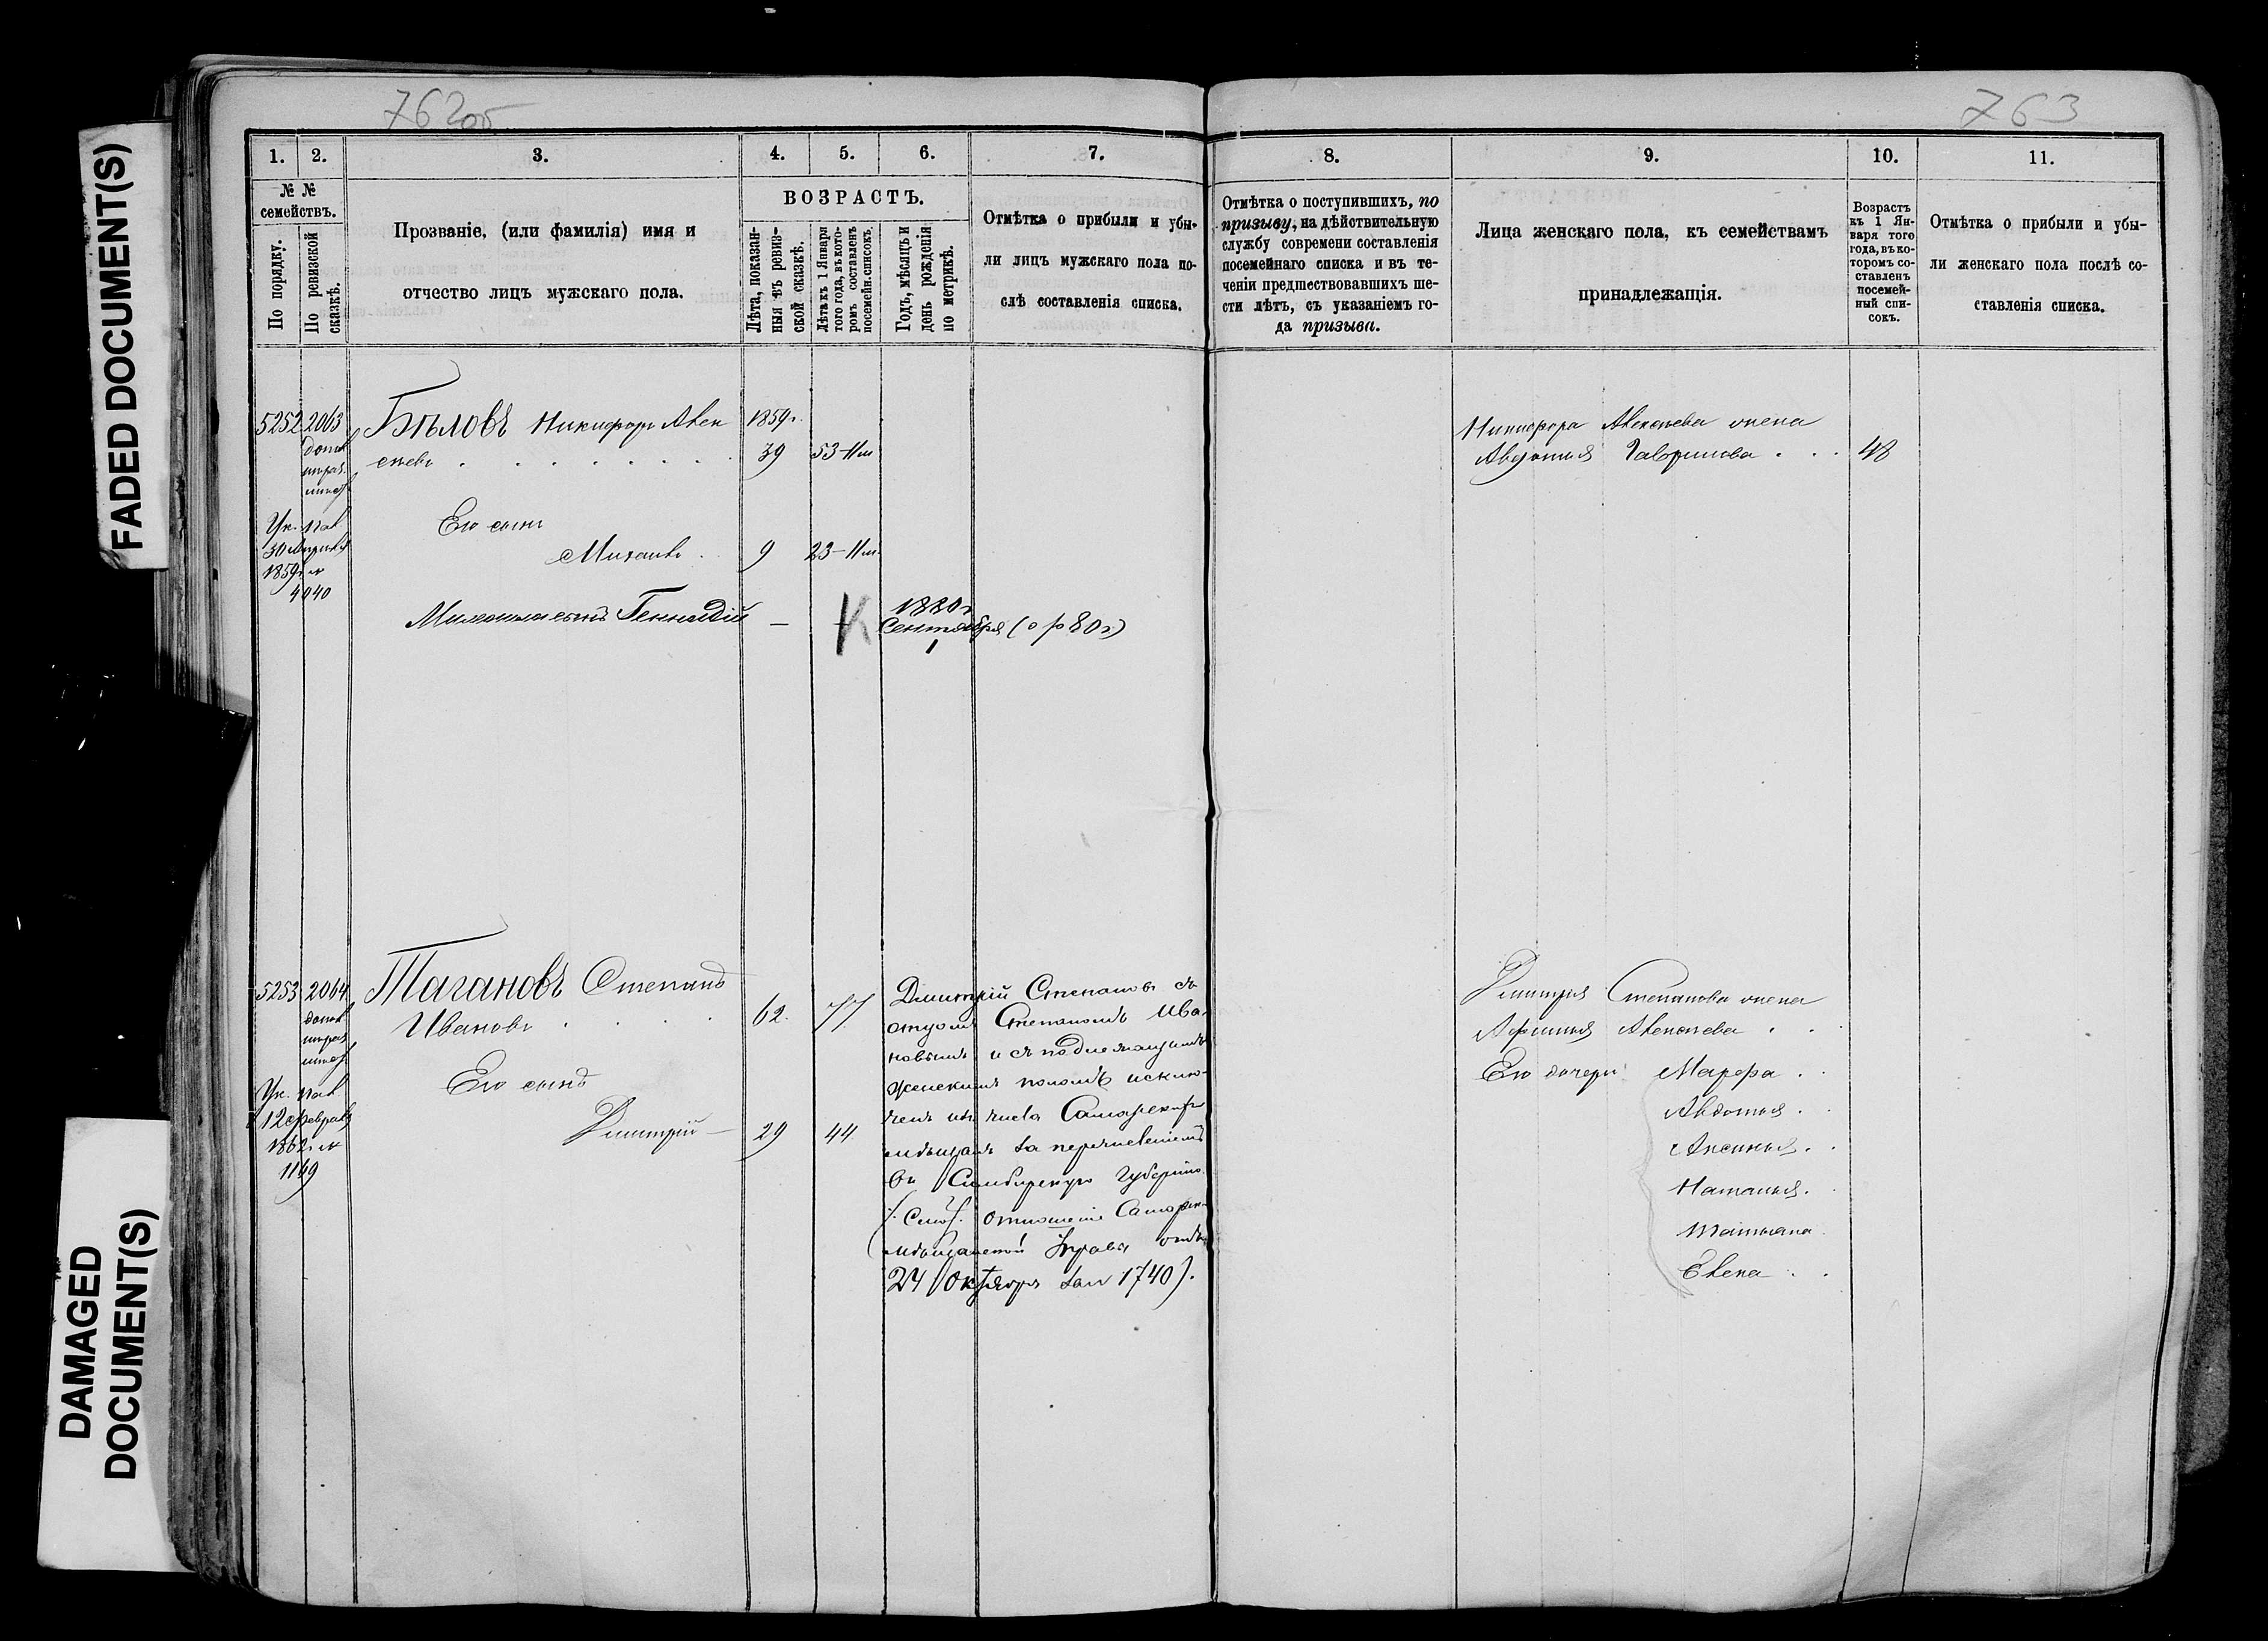 FADED DOCUMENT(S)
DAMAGED
DOCUMENT(S)
762об
763
1. 2. 3. 4. 5. 6. 7. 8. 9. 10. 11.
№ №
семействъ.
По порядку.
По ревизской
сказкѣ.
Прозваніе, (или фамилія) имя и
отчество лицъ мужскаго пола.
ВОЗРАСТЪ.
Лѣта, показан-
ныя въ ревиз-
ской сказкѣ.
Лѣта къ 1 Января
того года, въ кото-
ромъ составленъ
посемейн. списокъ.
Годъ, мѣсяцъ и
день рожденія
по метрикѣ.
Отмѣтка о прибыли и убы-
ли лицъ мужскаго пола по-
слѣ составленія списка.
Отмѣтка о поступившихъ, по
призыву, на дѣйствительную
службу современи составленія
посемейнаго списка и въ те-
ченіи предшествовавшихъ ше-
сти лѣтъ, съ указаніемъ го-
да призыва.
Лица женскаго пола, къ семействамъ
принадлежащія.
Возрастъ
къ 1 Ян-
варя того
года, въ ко-
торомъ со-
ставленъ
посемей-
ный спи-
сокъ.
Отмѣтка о прибыли и убы-
ли женскаго пола послѣ со-
ставленія списка.
5252 2063 Бѣловъ Никифоръ Алек 1859г.
сѣевъ 39 53-11м
Ук. пал
30 Апрѣля
1859г. №
4040
Его сынъ
Михаилъ 9 23-11м
Михаила сынъ Геннадій — К 1880г
Сентября (о р 80г)
1
Никифора Алексѣева жена
Авдотья Гаврилова 48
5253 2064 Тагановъ Степанъ
Ивановъ 62. 77
Ук. пал
12 Февраля
1862г. №
1149
Его сынъ
Дмитрій — 29 44
Дмитрій Степановъ съ
отцомъ Степаномъ Ива-
новымъ и съ подлежащимъ
женскимъ поломъ исклю-
ченъ изъ числа Самарскихъ
мѣщанъ за перечисленіемъ
въ Симбирскую губернію
отношеніе Самарск.
мѣщанской Управы отъ
24 Октября за № 1740).
Дмитрія Степанова жена
Афимья Алексѣева
Его дочери: Марфа
Авдотья
Аксинья
Наталья
Татьяна
Елена